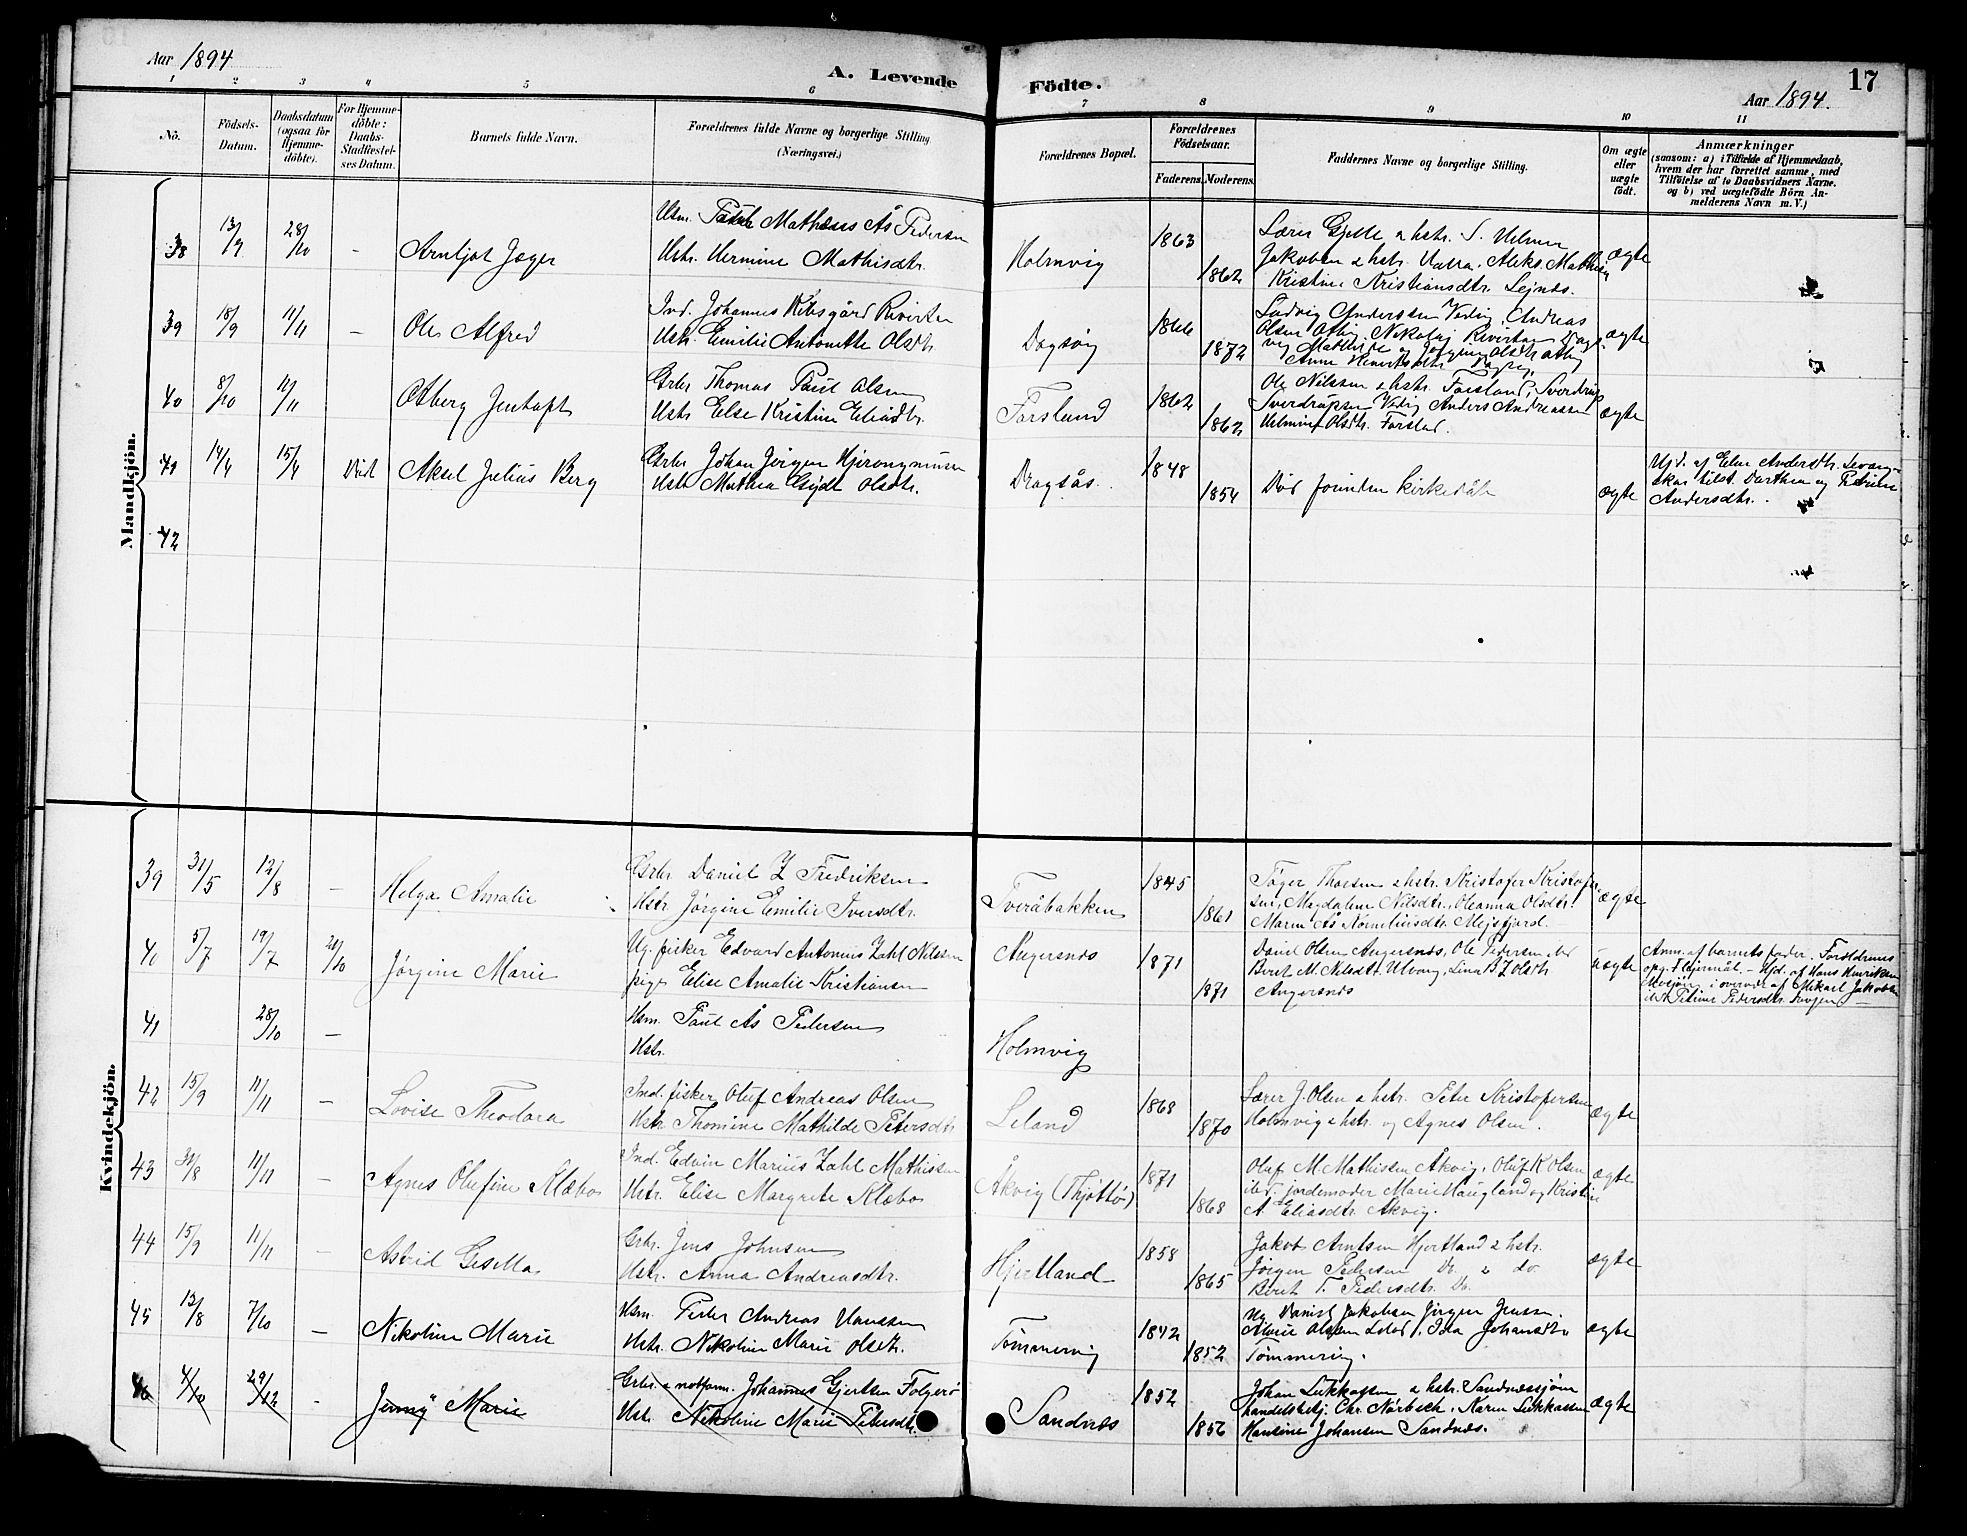 Aar 1894
A. Levende
Födte.
Aar 1894.
17
1 2 3 4 5 6 7 8 9 10 11
Nö.
Födsels-
Datum.
Daabsdatum
(ogsaa for
Hjemme-
döbte).
For Hjemme-
döbte:
Daabs-
Stadfestel-
ses Datum.
Barnets fulde Navn.
Forældrenes fulde Navne og borgerlige Stilling
(Næringsvei.)
Forældrenes Bopæl.
Forældrenes
Födselsaar.
Faderens. Moderens.
Faddernes Navne og borgerlige Stilling.
Om ægte
eller
uægte
födt.
Anmærkninger
(saasom: a) i Tilfælde af Hjemmedaab,
hvem der har forrettet samme, med
Tilföielse af to Daabsvidners Navne,
og b) ved uægtefödte Börn An-
melderens Navn m. V.)
Mandkjön.
38 13/9 28/10 - Arnljot Jæger
Hsm. Paul Mathæus Ås Pedersen
Hstr. Hermine Mathisdtr.
Holmvig
1863
1862
Lærer Gjelle & hstr. S. Helmer
Jakobsen & hstr. Aleks. Mathisen
Kristine Kristiansdtr. Lejnæs.
ægte
39 18/9 11/11 - Ole Alfred
Ind. Johannes Ribsgård Rivertsen
Hstr. Emilie Antonette Olsdtr.
Dagsvig
1866
1872
Ludvig Anderssen Vedvig, Andreas
Olsen Nikolaj Rivertsen Dags-
vig Mathilde og Jørgine Olsdtr
Anne Dagsvig
ægte
40 8/10 11/11 Otberg Jentoft
Grbr Thomas Paul Olsen
Hstr Else Kristine Eliasdtr.
Forslund
1862
1862
Ole Nilssen & hstr. Forsland, Sverdrup
Sverdrupsen Vedvig Anders Andreassen
Helmine Olsdtr. Forslad.
ægte
41 14/4 15/4 Død Aksel Julius Berg
Grbr Johan Jørgen Hjeronymusen
Hstr Mathea Gjyda Olsdtr.
Dragsås.
1848
1854
Død forinden kirkedåb
ægte
Hjd. af Elen Andersdtr. Levang-
skar tilst. Dorthea og Petrine
Andersdtr.
42
Kvindekjön.
39 31/5 12/8 - Helga Amalie
Grbr Daniel Z Fredriksen
Hstr Jørgine Emilie Iversdtr.
Tveråbakken
1845
1861
Tøger Thorsen & hstr. Kristofer Kristofer-
sen, Magdalene Nilsdtr., Oleanna Olsdtr.
Maren Ås Korneliusdtr. Mejsfjord.
ægte
40 5/7 19/7 28/10 Jørgine Marie
Ug. fisker Edvard Antonius Zahl Nilssen
pige Elise Amalie Kristiansen
Angersnæs
1871
1871
Daniel Olsen Angersnæs, Ole Pedersen ibd
Beret M. Nilsdtr. Ulvang, Lina B Z Olsdtr
Angersnæs
uægte
Anm. af barnets fader. Forældrenes
opg. 1 lejermål. - Hjd. af Hans Henriksen
i overvær af Mikael Jakobsen
ibd & Petrine Pedersdtr.
41 28/10 -
Hsm. Paul Ås Pedersen
Hstr.
Holmvig
42 15/9 11/11 - Lovise Theodora
Ind. fisker Oluf Andreas Olsen
Hstr Thomine Mathilde Petersdtr
Leland
1868
1870
Lærer J. Olsen & hstr. Peter Kristofersen
Holmvig & hstr. og Agnes Olsen.
ægte
43 31/8 11/11 - Agnes Olufine Klæbo
Ind. Edvin Marius Zahl Mathissen
Hstr. Elise Margrete Klæbo
Åkvig (Thjøttø)
1871
1868
Oluf M. Mathissen Åkvig, Oluf K Olsen
ibd. jordemoder Marie Haugland og Kristine
A. Eliasdtr. Åkvig.
ægte
44 15/9 11/11 - Astrid Gesella
Grbr. Jens Johnsen
Hstr. Anna Andreasdtr.
Hjertland
1858
1865
Jakob Arntsen Hjertland & hstr.
Jørgen Pedersen Do. & do
Beret T. Pedersdtr. Do.
ægte
45 12/8 7/10 - Nikoline Marie
Hsm. Peter Andreas Hanssen
Hstr. Nikoline Marie Olsdtr.
Tømmervig
1842
1852
Ug. Daniel Jakobsen Jørgen Jenssen.
Marie Olssen Leland, Ida Johansdtr
Tømmervig.
ægte
46 4/10 29/12 - Jenny Marie
Grbr. & notform. Johannes Gjertsen Folgerø
Hstr. Nikoline Marie Petersdtr.
Sandnæs
1852
1856
Johan Lukkassen & hstr. Sandnæssjøen
handelsbetj. Chr. Nørbech, Karen Lukkassen
Hansine Johansen Sandnæs.
ægte